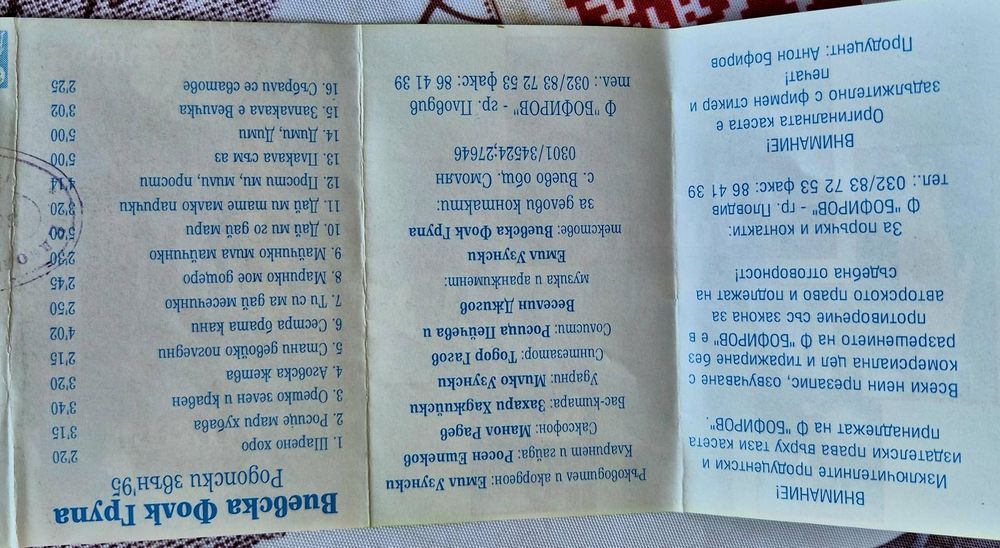 ВНИМАНИЕ!
Изключителните продуцентски и
издателски права върху тази касета
принадлежат на Ф "БОФИРОВ".
Всеки неин презапис, озвучаване с
комерсиална цел и тиражиране без
разрешението на Ф "БОФИРОВ" е в
противоречие със закона за
авторското право и подлежат на
съдебна отговорност!
За поръчки и контакти:
Ф "БОФИРОВ" - гр. Пловдив
тел.: 032/83 72 53 факс: 86 41 39
ВНИМАНИЕ!
Оригиналната касета е
задължително с фирмен стикер и
печат!
Продуцент: Антон Бофиров
Ръководител и акордеон: Емил Узунски
Кларинет и гайда: Росен Ешпеков
Саксофон: Манол Радев
Бас-китара: Захари Хаджийски
Ударни: Милко Узунски
Синтезатор: Тодор Гагов
Солисти: Росица Пейчева и
Веселин Джигов
музика и аранжимент:
Емил Узунски
текстове: Виевска Фолк Група
за делови контакти:
с. Виево общ. Смолян
0301/34524,27646
Ф "БОФИРОВ" - гр. Пловдив
тел.: 032/83 72 53 факс: 86 41 39
Виевска Фолк Група
Родопски звън'95
1. Шарено хоро 2'20
2. Росице мари хубава 3'15
3. Орешко зелен и кравен 3'40
4. Аговска жетва 3'20
5. Стани девойко погледни 2'15
6. Сестра брата кани 4'02
7. Ти си ми дай месечинко 2'50
8. Маринко мое дощеро 2'45
9. Майчинко мила майчинко 2'30
10. Дай ми го дай мари 5'00
11. Дай ми тате малко парички 3'20
12. Прости ми, мили, прости 4'14
13. Плакала съм аз 5'00
14. Дими, Дими 5'00
15. Заплакала е Величка 3'02
16. Събрали се сватове 2'25